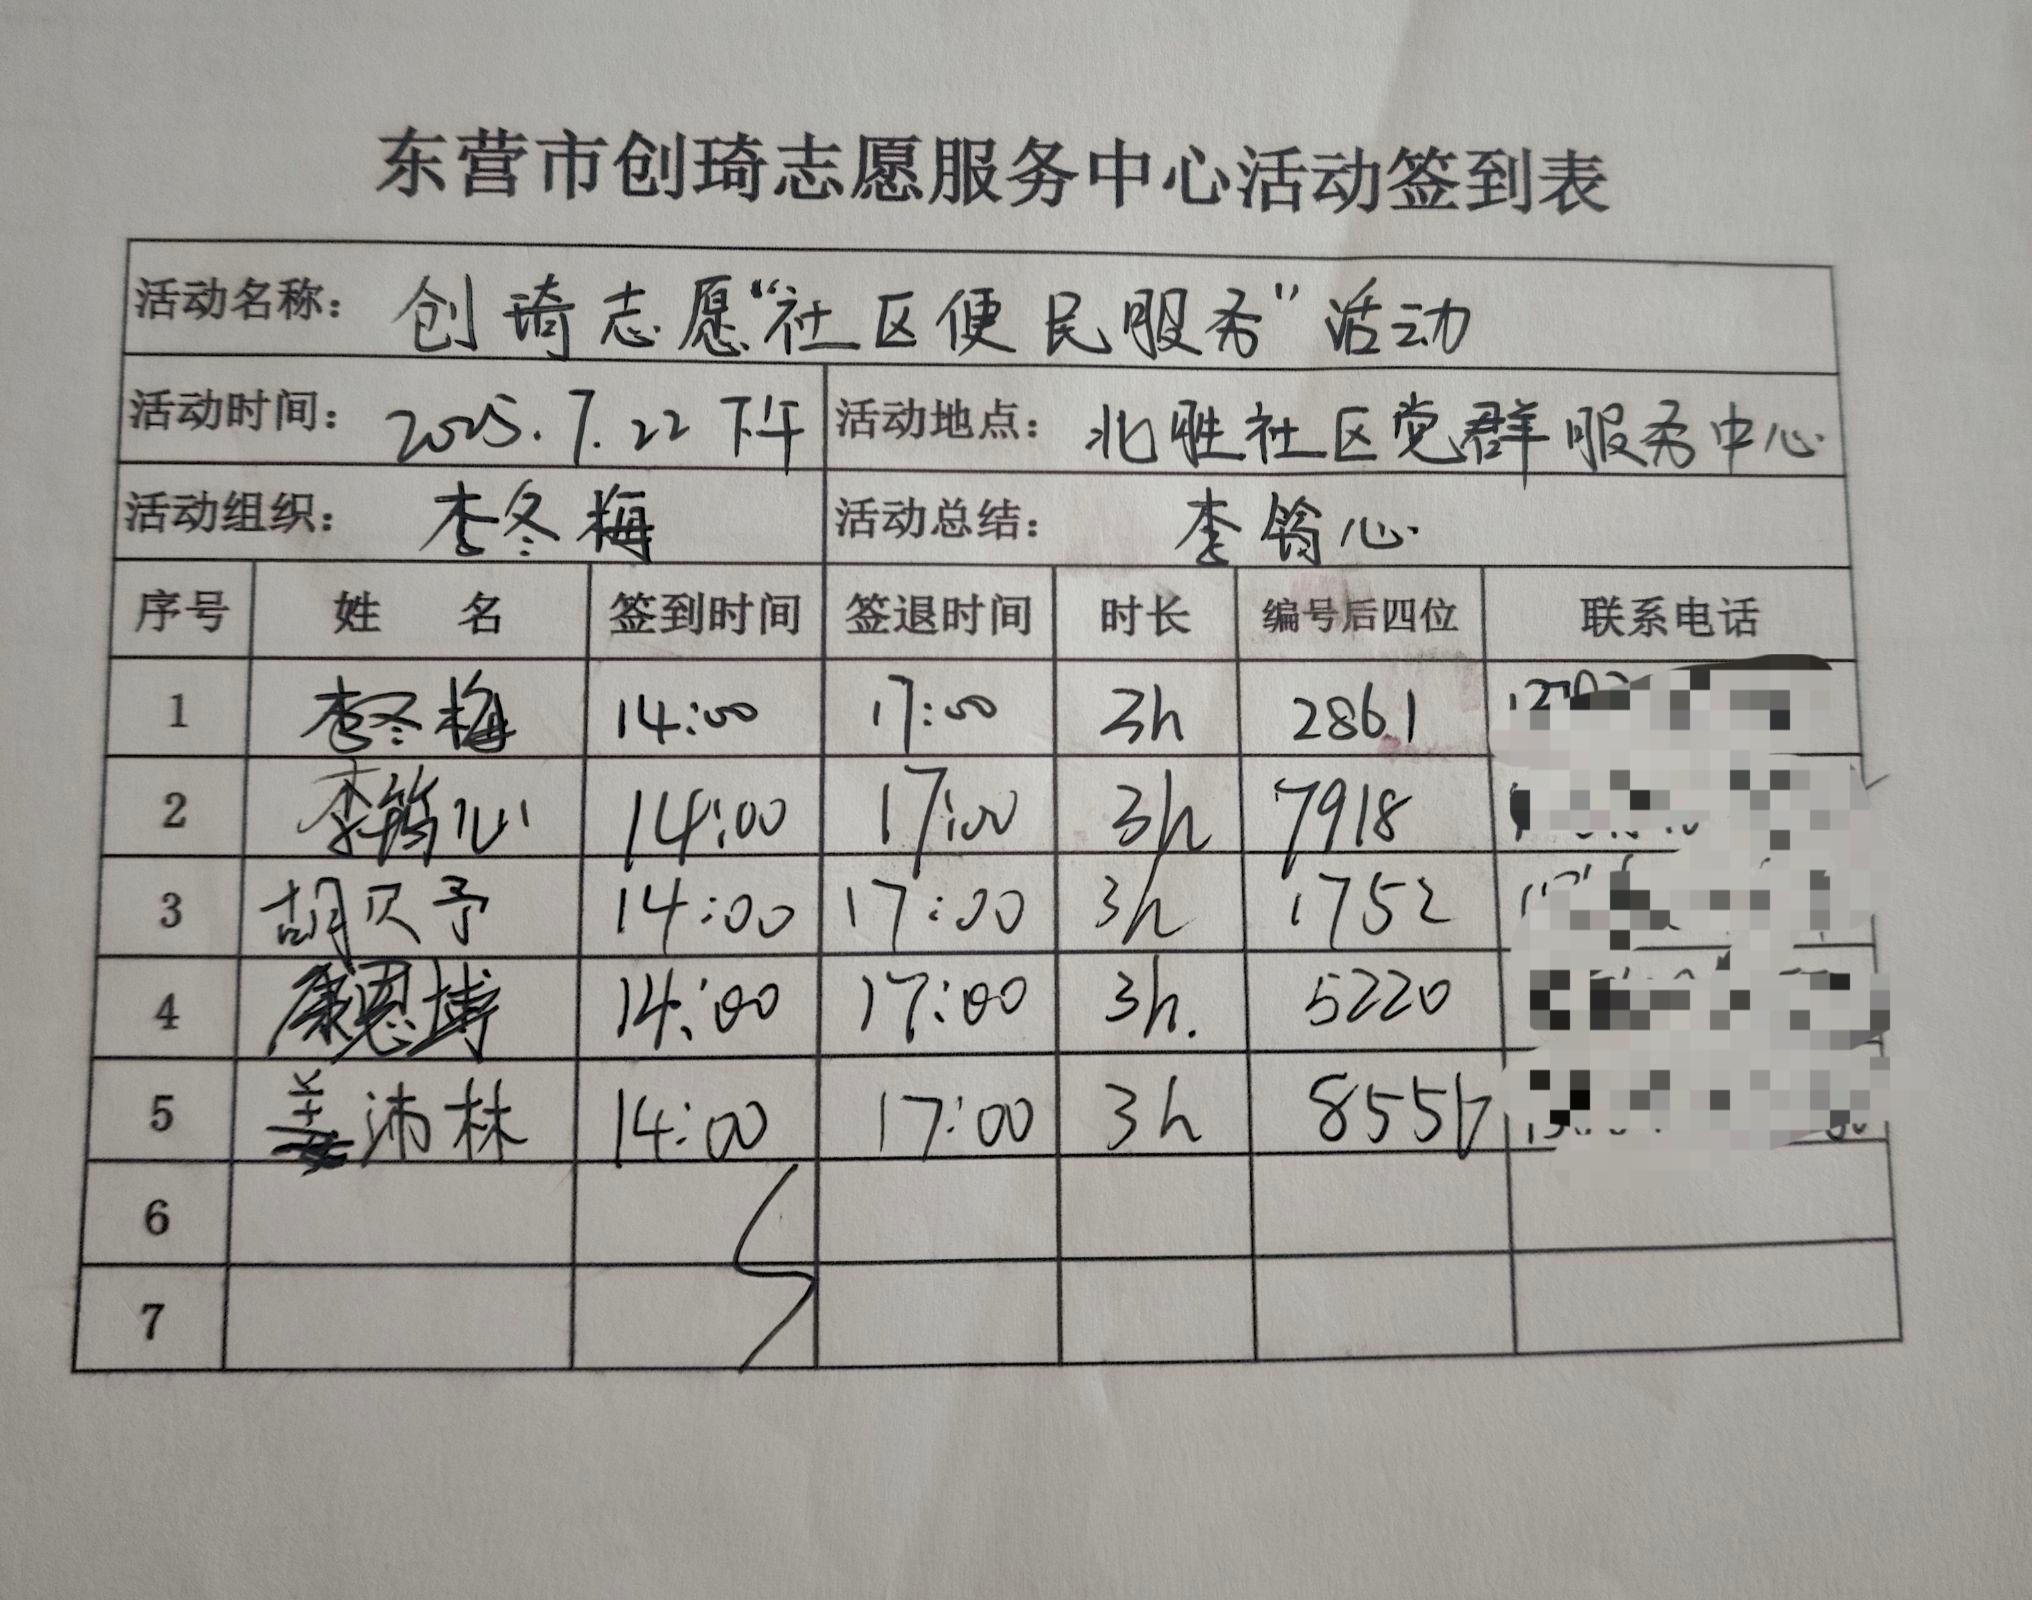 东营市创琦志愿服务中心活动签到表
活动名称： 创琦志愿“社区便民服务”活动
活动时间： 2025.7.22 下午 活动地点： 北胜社区党群服务中心
活动组织： 李冬梅 活动总结： 李筠心
序号 姓 名 签到时间 签退时间 时长 编号后四位 联系电话
1 李冬梅 14:00 17:00 3h 2861
2 李筠心 14:00 17:00 3h 7918
3 胡贝予 14:00 17:00 3h 1752
4 康恩博 14:00 17:00 3h. 5220
5 沛林 14:00 17:00 3h
6
7